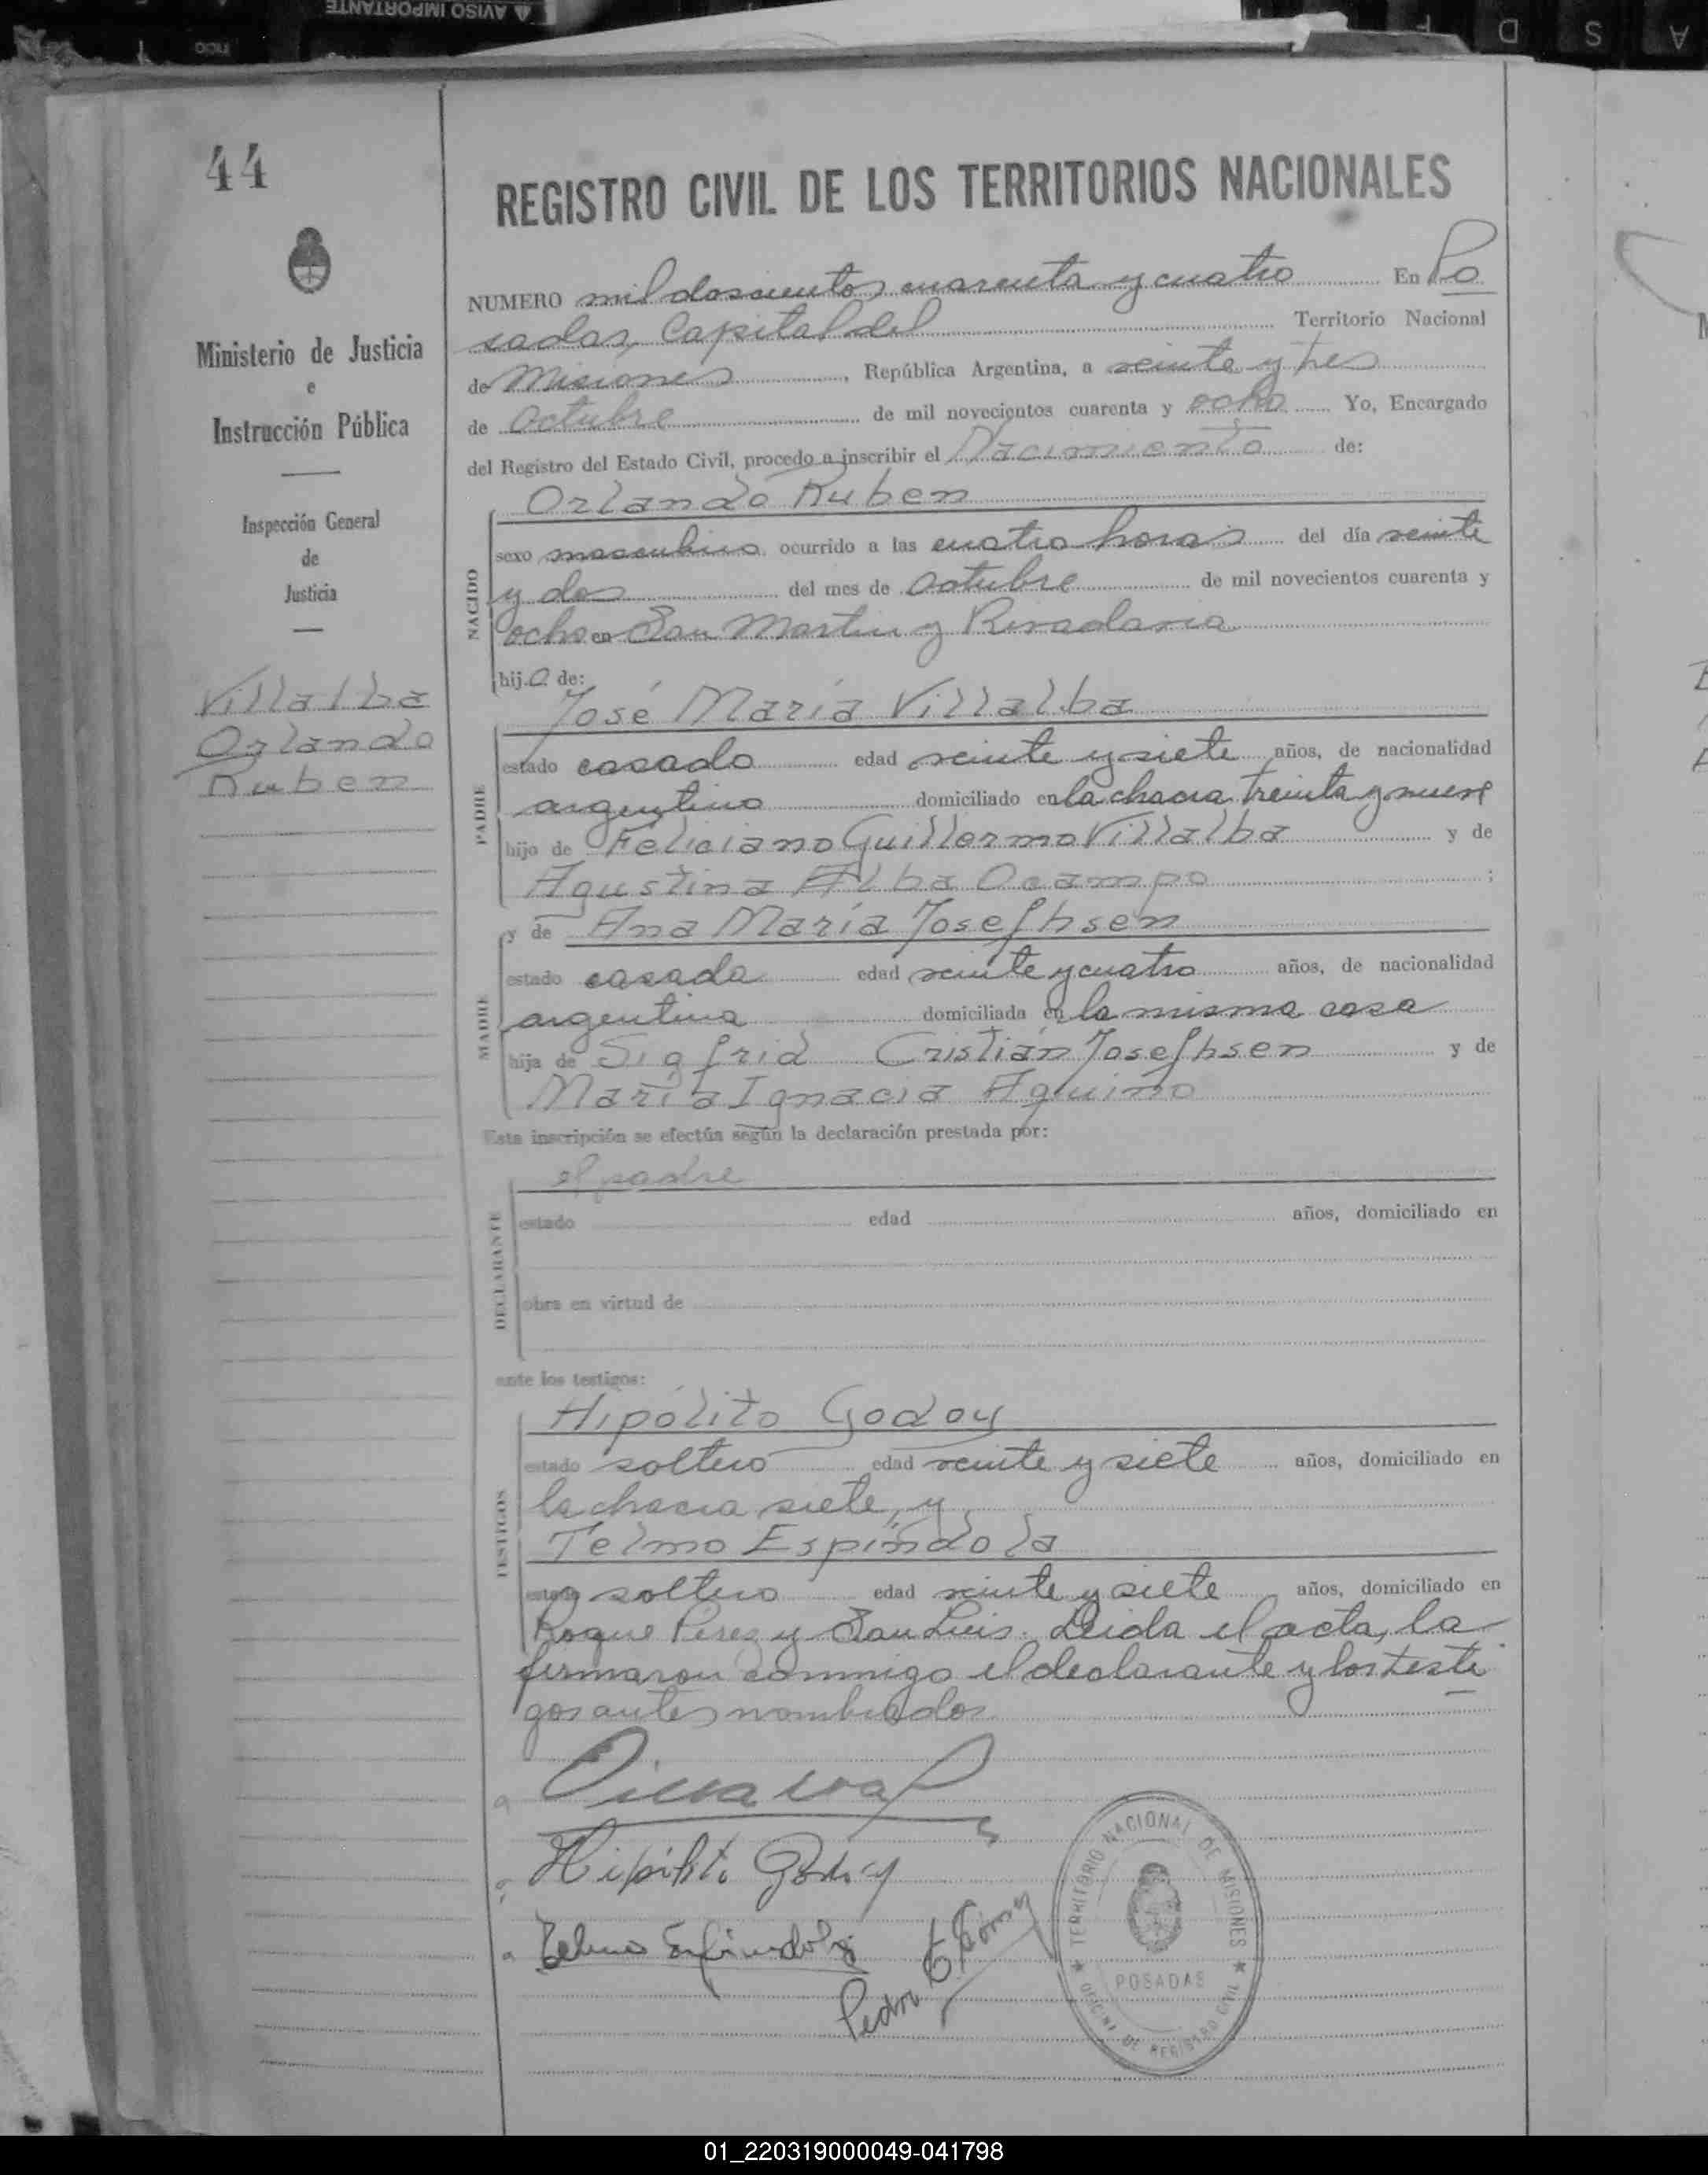 AVISO IMPORTANTE
INICIO
F D S A
44
Ministerio de Justicia
e
Instrucción Pública
Inspección General
de
Justicia
Villalba
Orlando
Ruben
REGISTRO CIVIL DE LOS TERRITORIOS NACIONALES
NUMERO mil doscientos cuarenta y cuatro En Po
sadas, Capital del Territorio Nacional
de Misiones, República Argentina, a veinte y tres
de Octubre de mil novecientos cuarenta y ocho Yo, Encargado
del Registro del Estado Civil, procedo a inscribir el Nacimiento de:
Orlando Ruben
NACIDO
sexo masculino ocurrido a las cuatro horas del día veinte
y dos del mes de Octubre de mil novecientos cuarenta y
ocho en San Martin y Rivadavia
hijo de:
José María Villalba
PADRE
estado casado edad veinte y siete años, de nacionalidad
argentino domiciliado en la chacra treinta y nueve
hijo de Feliciano Guillermo Villalba y de
Agustina Alba Ocampo ;
y de Ana María Josephsen
MADRE
estado casada edad veinte y cuatro años, de nacionalidad
argentina domiciliada en la misma casa
hija de Sigfrid Cristián Josephsen y de
María Ignacia Aquino
Esta inscripción se efectúa según la declaración prestada por:
el padre
DECLARANTE
estado edad años, domiciliado en
obra en virtud de
ante los testigos:
Hipólito Godoy
TESTIGOS
estado soltero edad veinte y siete años, domiciliado en
la chacra siete, y
Telmo Espíndola
estado soltero edad veinte y siete años, domiciliado en
Roque Perez y San Luis. Leida el acta, la
firmaron conmigo el declarante y los testi
gos antes nombrados
Hipólito Godoy
Telmo Espindola
Pedro E Gómez
TERRITORIO NACIONAL DE MISIONES
POSADAS
OFICINA DE REGISTRO CIVIL
01_220319000049-041798